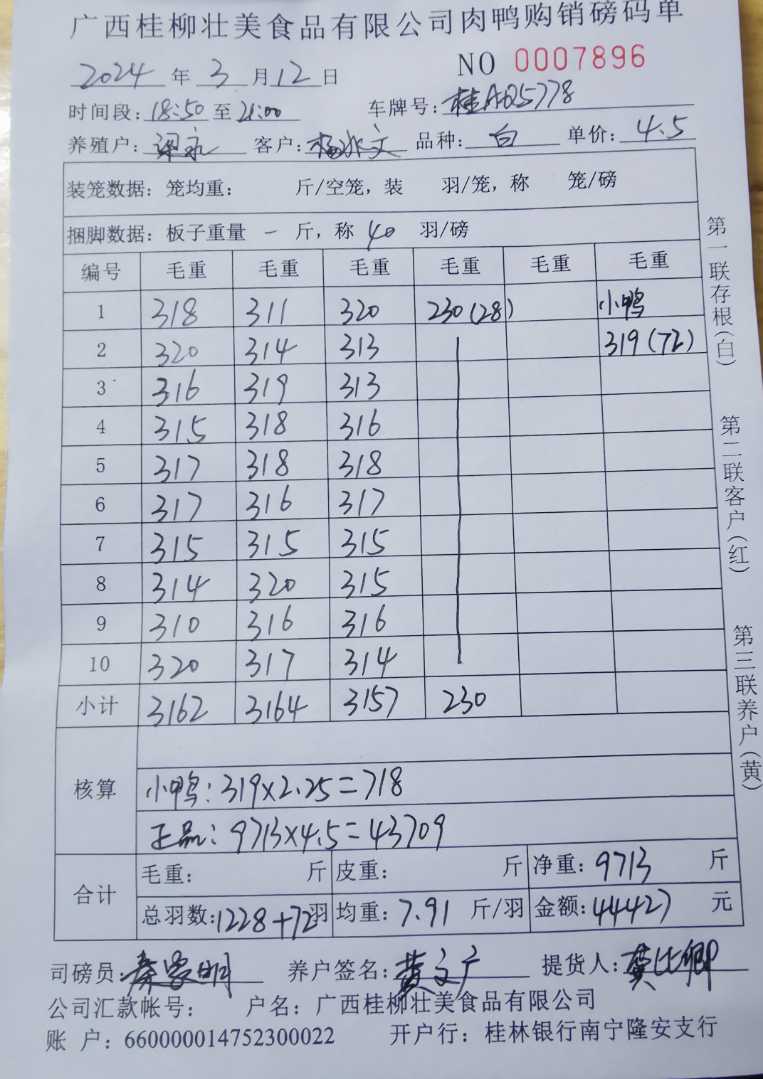 广西桂柳壮美食品有限公司肉鸭购销磅码单
NO 0007896
2024 年 3 月 12 日
时间段: 18:50 至 21:00 车牌号: 桂AQ5778
养殖户: 客户: 杨 文 品种: 白 单价: 4.5
装笼数据: 笼均重: 斤/空笼, 装 羽/笼, 称 笼/磅
捆脚数据: 板子重量 一 斤, 称 40 羽/磅
编号 毛重 毛重 毛重 毛重 毛重 毛重
1 318 311 320 230(28) 小鸭
2 320 314 313 319(72)
3 316 319 313
4 315 318 316
5 317 318 318
6 317 316 317
7 315 315 315
8 314 320 315
9 310 316 316
10 320 317 314
小计 3162 3164 3157 230
核算
小鸭: 319×2.25=718
正品: 9713×4.5=43709
合计
毛重: 斤 皮重: 斤 净重: 9713 斤
总羽数: 1228+72羽 均重: 7.91 斤/羽 金额: 44427 元
司磅员: 养户签名: 黄文广 提货人:
公司汇款帐号: 户名: 广西桂柳壮美食品有限公司
账 户: 660000014752300022 开户行: 桂林银行南宁隆安支行
第一联存根(白)
第二联客户(红)
第三联养户(黄)